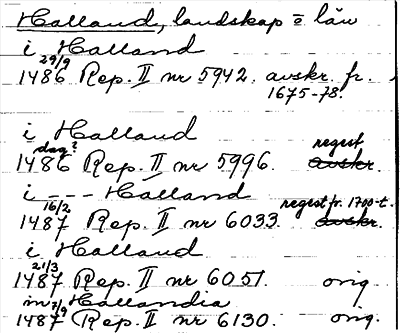 Halland, landskap o län
i Halland
29/9
1486 Rep. II nr 5942. avskr. fr.
1675-78.
i Halland
dag? regest
1486 Rep. II nr 5996. avskr.
i --- Halland
16/2 regest fr. 1700-t.
1487 Rep. II nr 6033. avskr.
i Halland
21/3
1487 Rep. II nr 6051. orig.
in Hallandia
7/9
1487 Rep. II nr 6130. orig.